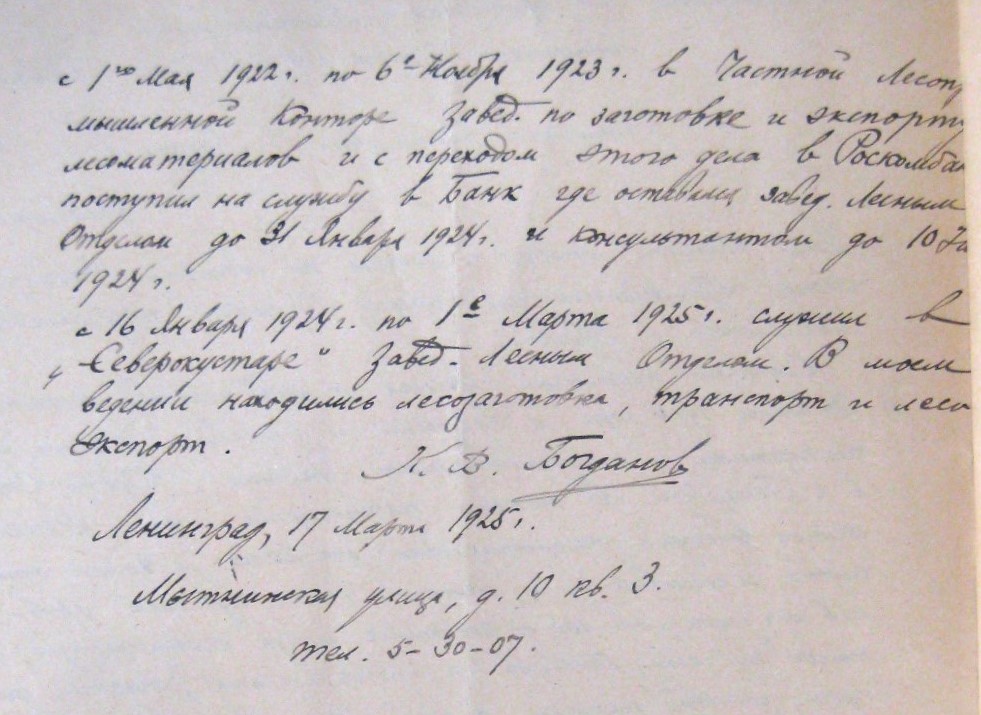 с 1го Мая 1922 г. по 6е Ноября 1923 г. в Частной Лесопр
мышленной Конторе Завед. по заготовке и экспорту
лесоматериалов и с переходом этого дела в Роскомбан
поступил на службу в Банк где оставался завед. Лесным
Отделом до 31 Января 1924 г. и консультантом до 10
1924 г.
с 16 Января 1924 г. по 1е Марта 1925 г. служил в
„Северокустаре" Завед. Лесным Отделом. В моем
ведении находились лесозаготовка, транспорт и лесо
экспорт.
К. В. Богданов
Ленинград, 17 Марта 1925 г.
Мытнинская улица, д. 10 кв. 3.
тел. 5-30-07.